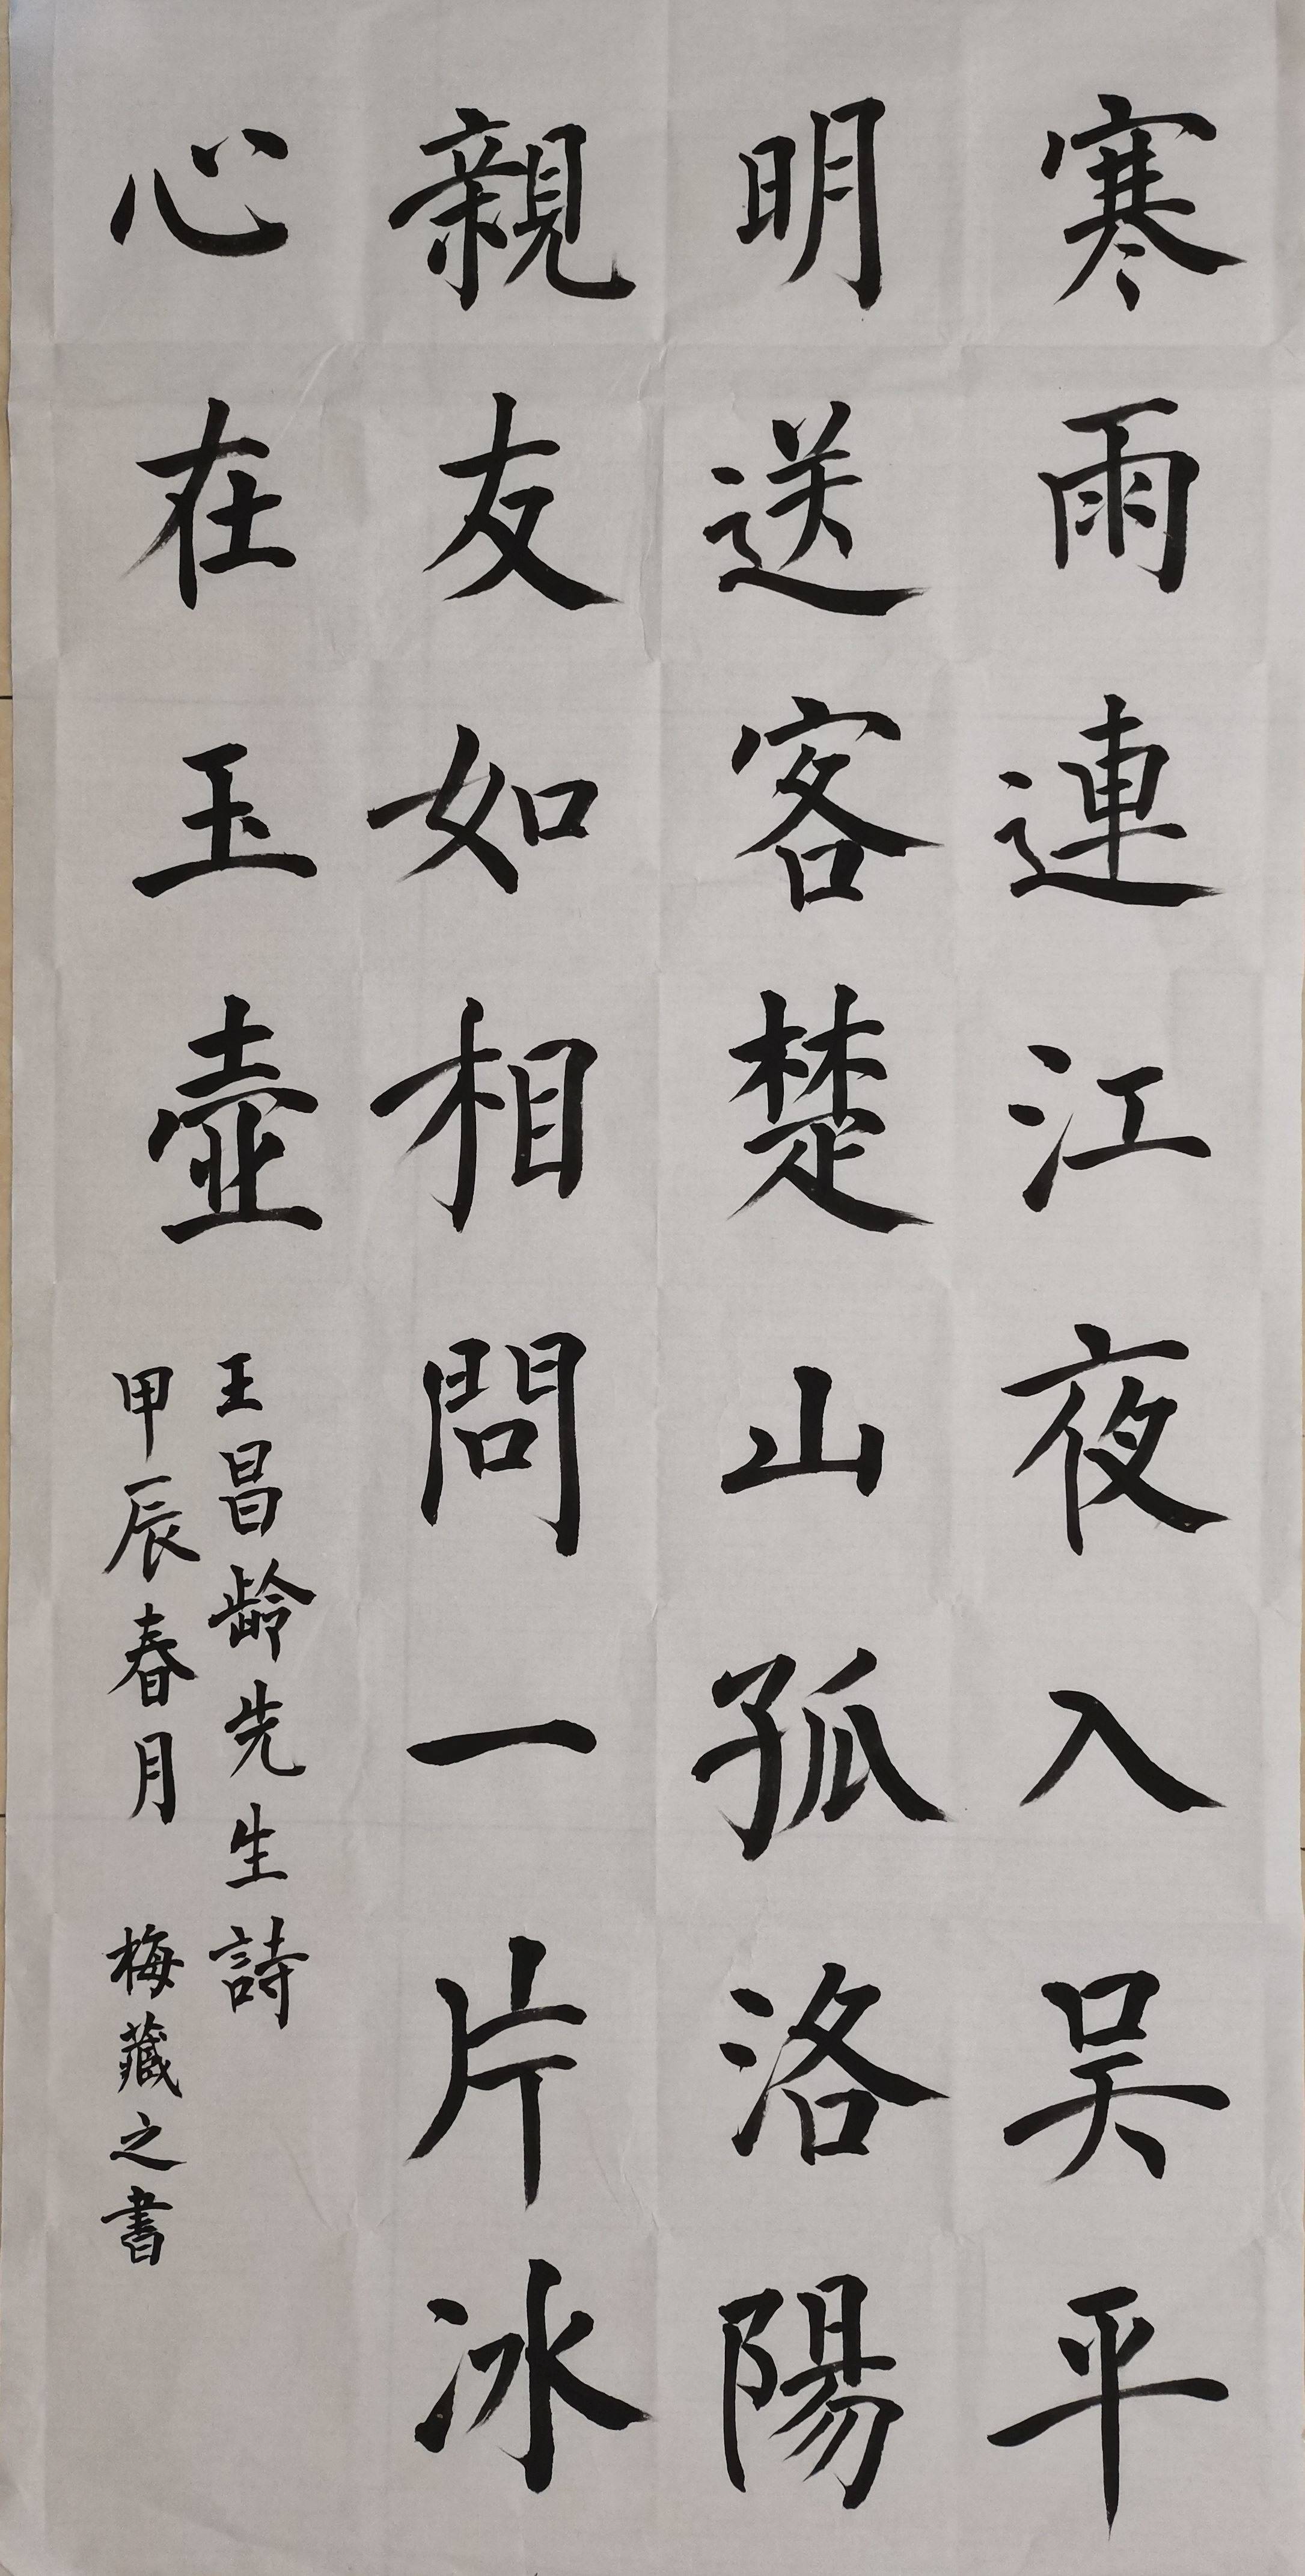 寒雨連江夜入吴平
明送客楚山孤洛陽
親友如相問一片冰
心在玉壺
王昌龄先生詩
甲辰春月 梅藏之書